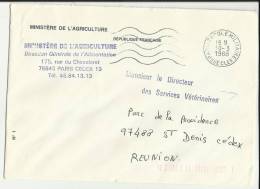 MINISTÈRE DE L'AGRICULTURE
RÉPUBLIQUE FRANÇAISE
MINISTÈRE DE L'AGRICULTURE
Direction Générale de l'Alimentation
175, rue du Chevaleret
75646 PARIS CEDEX 13
Tél. 45.84.13.13
18 H
1988
Monsieur le Directeur
des Services Vétérinaires
Parc de la Providence
97488 ST Denis cédex
REUNION